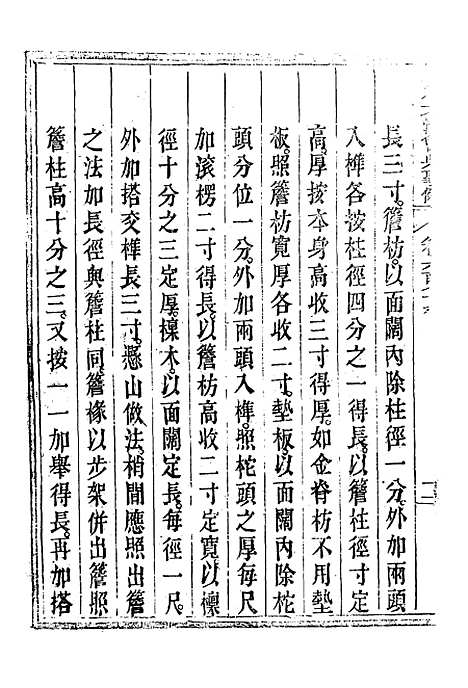 長三寸。簷枋。以面闊內除柱徑一分。外加兩頭
入榫各按柱徑四分之一得長。以簷柱徑寸定
高。厚按本身高收三寸得厚。如金脊枋不用墊
板。照簷枋寬厚各收二寸。墊板。以面闊內除柁
頭分位一分。外加兩頭入榫。照柁頭之厚每尺
加滾楞二寸得長。以簷枋高收二寸定寬。以檁
徑十分之三定厚。檁木。以面闊定長。每徑一尺。
外加搭交榫長三寸。懸山做法。梢間應照出簷
之法加長。徑與簷柱同。簷椽以步架併出簷照
簷柱高十分之三。又按一一加舉得長。再加搭